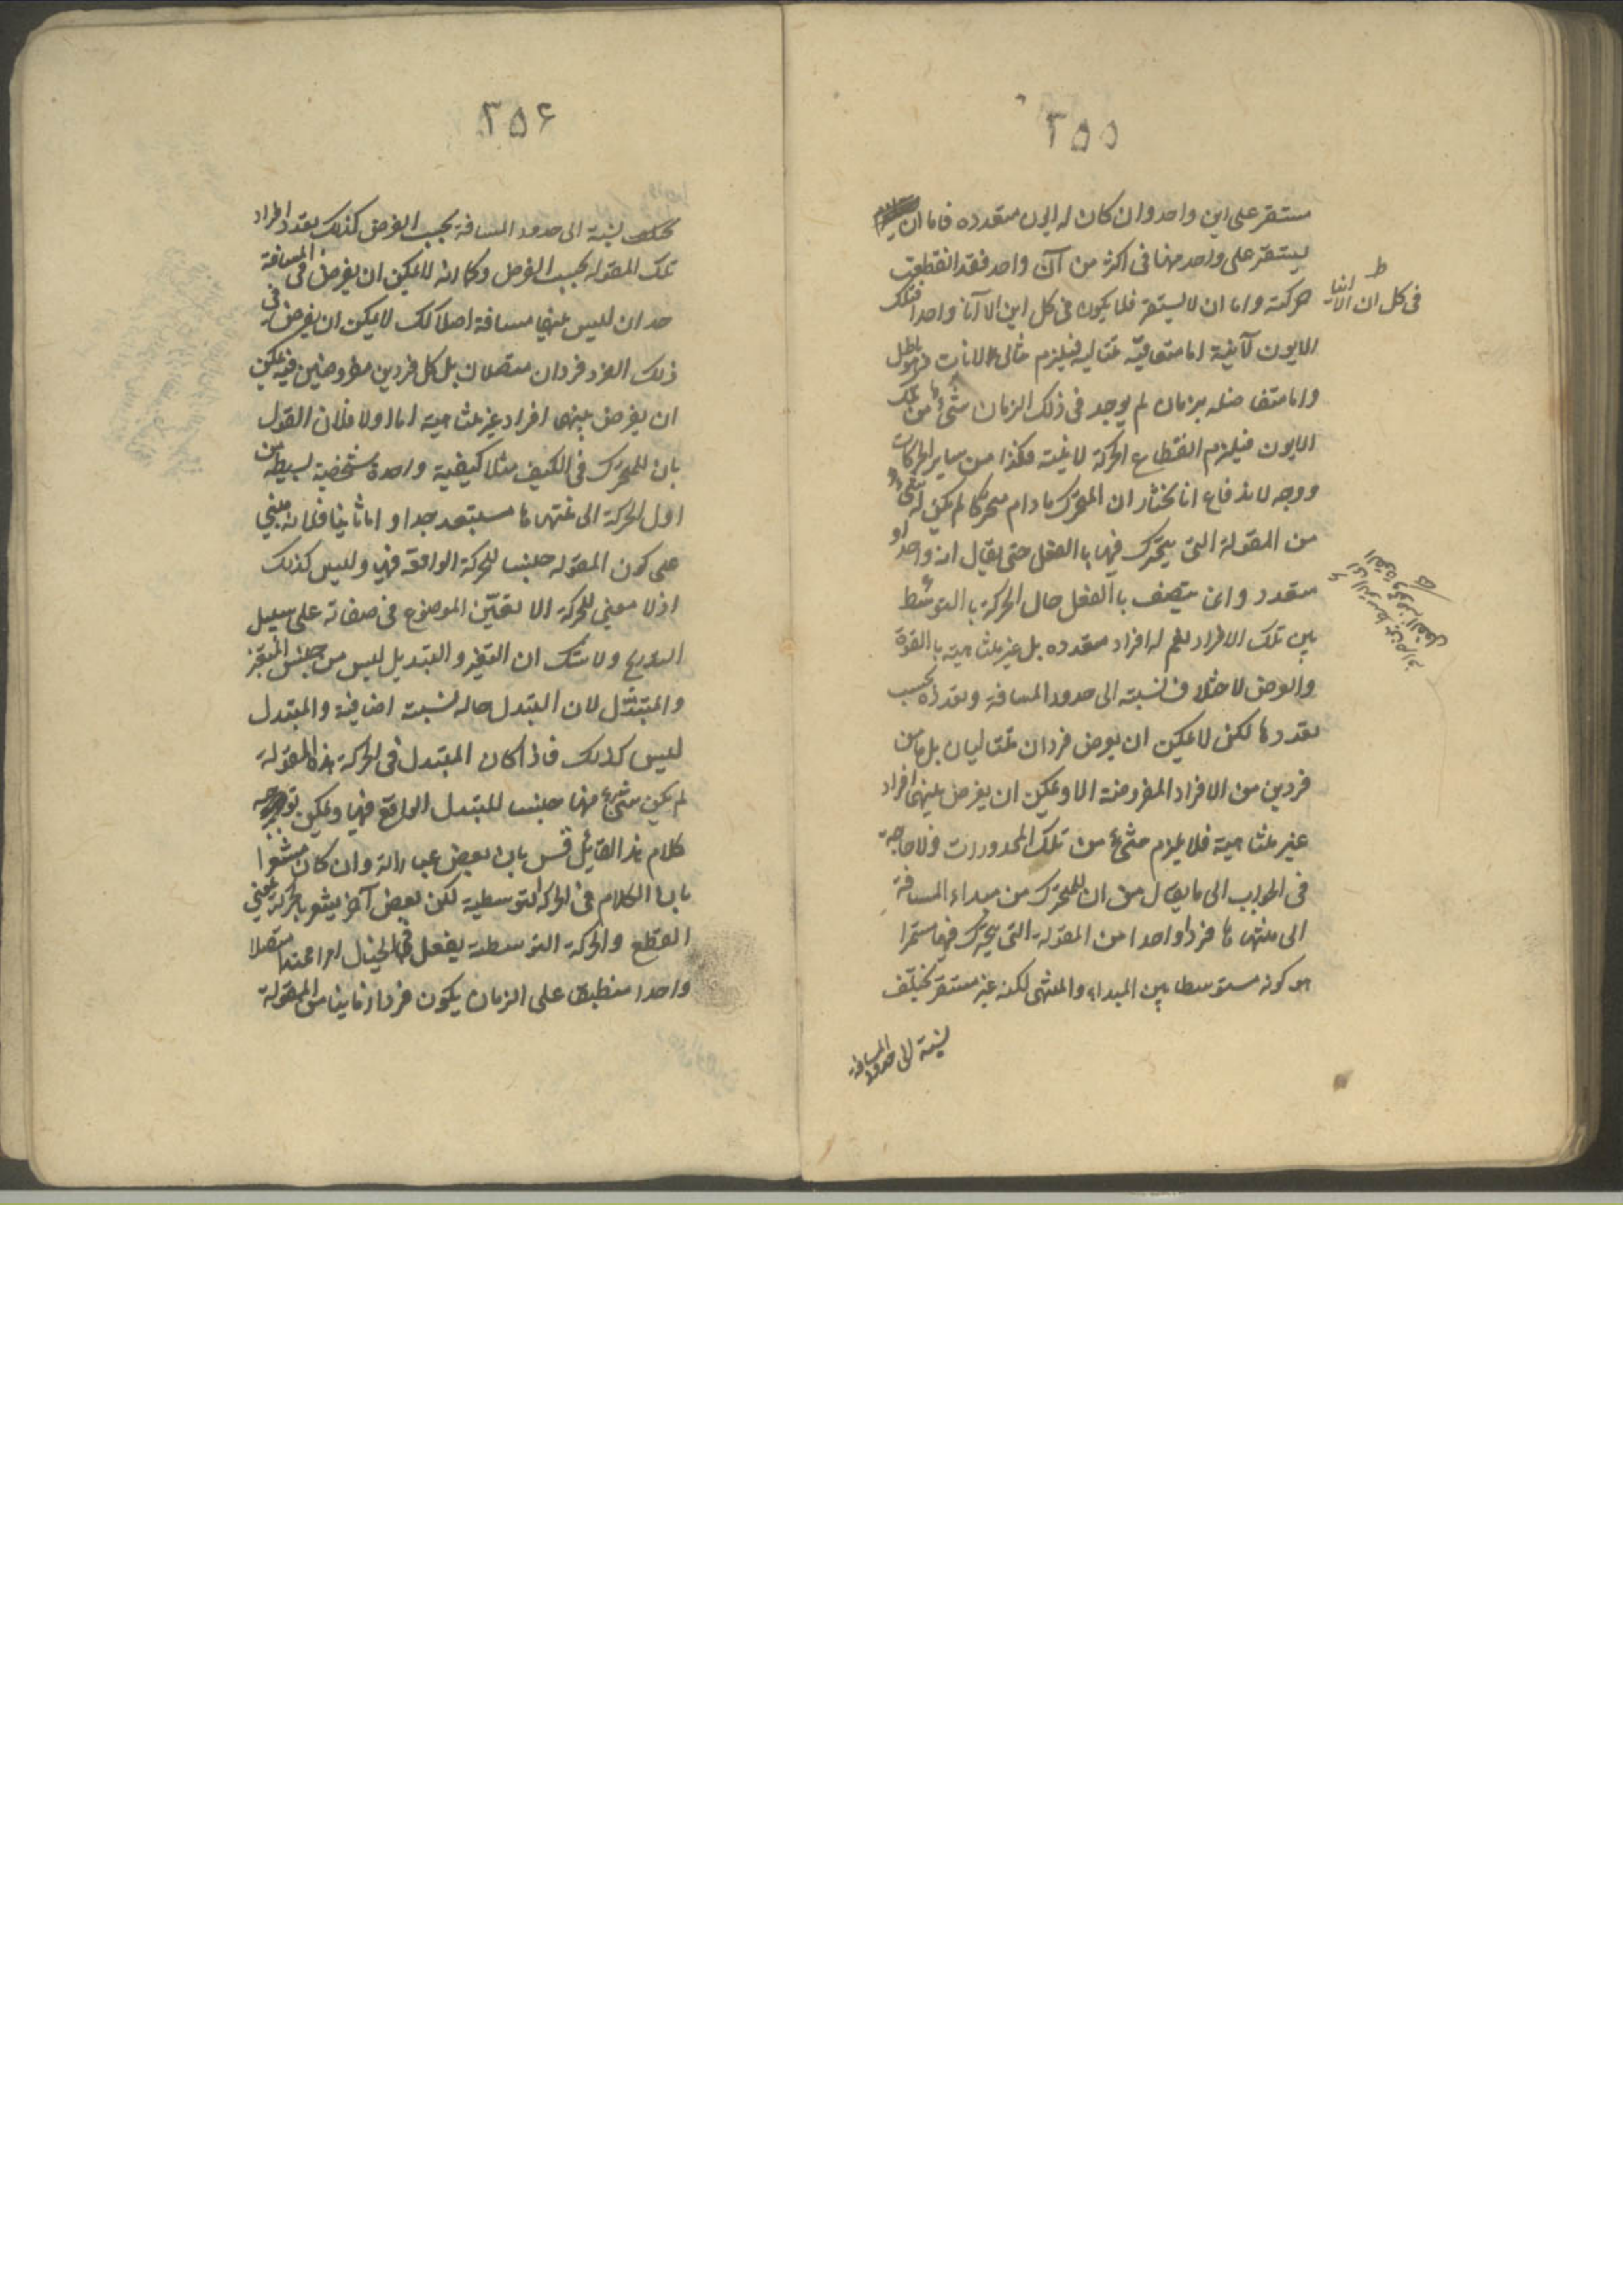 ٣٥٥
مستقر على اين واحد وان كان له ايون متعدده فاما ان
يستقر على واحد منها فى اكثر من آن واحد فقد انقطعت
حركته واما ان لا يستقر فلا يكون فى كل اين الا آنا واحدا فتلك
الايون لآنية اما متعاقبة متتاليه فيلزم تتالى الانات وهو باطل
واما متفاصله بزمان لم يوجد فى ذلك الزمان شىء من تلك
الايون فيلزم انقطاع الحركة لاينية هكذا من ساير الحركات
ووجه لاندفاع انا نختار ان المتحرك مادام متحركا لم يكن له شىء
من المقولة التى يتحرك فيها بالفعل حتى يقال انه واحد او
متعدد وانما يتصف بالفعل حال الحركة بالتوسط
بين تلك الافراد نعم له افراد متعدده بل غير متناهية بالقوة
والفرض لاختلاف نسبته الى حدود المسافة وتعدده بحسب
تعددها لكن لا يمكن ان يفرض فردان متتاليان بل ما من
فردين من الافراد المفروضة الا ويمكن ان يفرض بينهما افراد
غير متناهية فلا يلزم شىء من تلك المحذورات ولا حاجة
فى الجواب الى ما يقال من ان للمتحرك من مبداء المسافة
الى منتهاها فردا واحدا من المقولة التى يتحرك فيها مستمرا
هو كونه متوسطا بين المبداء والمنتهى لكنه غير مستقر تختلف
نسبته الى حدود المسافة
فى كل ان الا اينا
٣٥۶
نسبة الى حدود المسافة بحسب الفرض كذلك بتعدد افراد
تلك المقوله بحسب الفرض وكما انه لا يمكن ان يفرض فى المسافة
حدان ليس بينهما مسافة اصلا كك لا يمكن ان يفرض فى
ذلك الفرد فردان متصلان بل كل فردين مفروضين فيه يمكن
ان يفرض بينهما افراد غير متناهية اما اولا فلان القول
بان للمتحرك فى الكيف مثلا كيفية واحدة شخصية بسيطة من
اول الحركة الى منتهاها مستبعد جدا و اما ثانيا فلانه مبنى
على كون المقوله جنسا للحركة الواقعة فيها وليس كذلك
اذ لا معنى للحركة الا تغيّر الموضوع فى صفاته على سبيل
التدريج ولا شك ان التغير والتبديل ليس من جنس المتغير
والمتبدل لان التبدل حاله نسبته اضافية والمتبدل
ليس كذلك فاذا كان المتبدل فى الحركة هذه المقولة
لم يكن شىء منها جنسا للتبدل الواقع فيها ويمكن توجيه
كلام هذا القائل بان بعض عباراته وان كان مشعرا
بان الكلام فى الحركة التوسطية لكن بعض آخر يشعر بالحركة بمعنى
القطع والحركة التوسطية يفعل فى الخيال امرا ممتدا متصلا
واحدا منطبق على الزمان يكون فردا زمانيا من المقولة